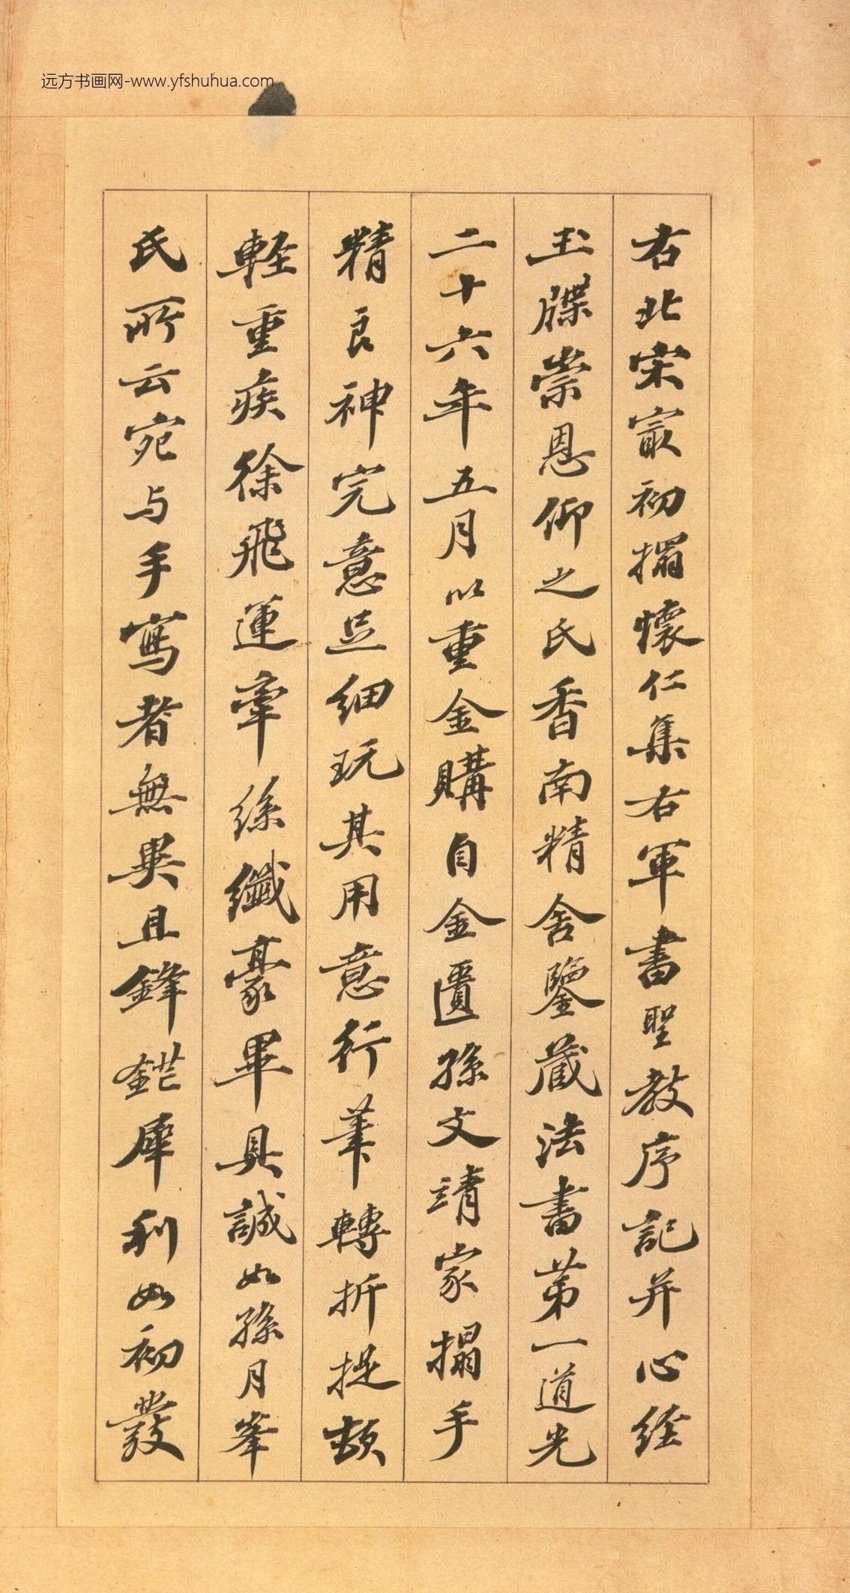 远方书画网-www.yfshuhua.com
右北宋冣初搨懷仁集右軍書聖教序記并心經
玉牒崇恩仰之氏香南精舍鑒藏法書第一道光
二十六年五月以重金購自金匱孫文靖家搨手
精良神完意足細玩其用意行筆轉折提頓
輕重疾徐飛運牽絲纖豪畢具誠如孫月峯
氏所云宛与手寫者無異且鋒鋩犀利如初發